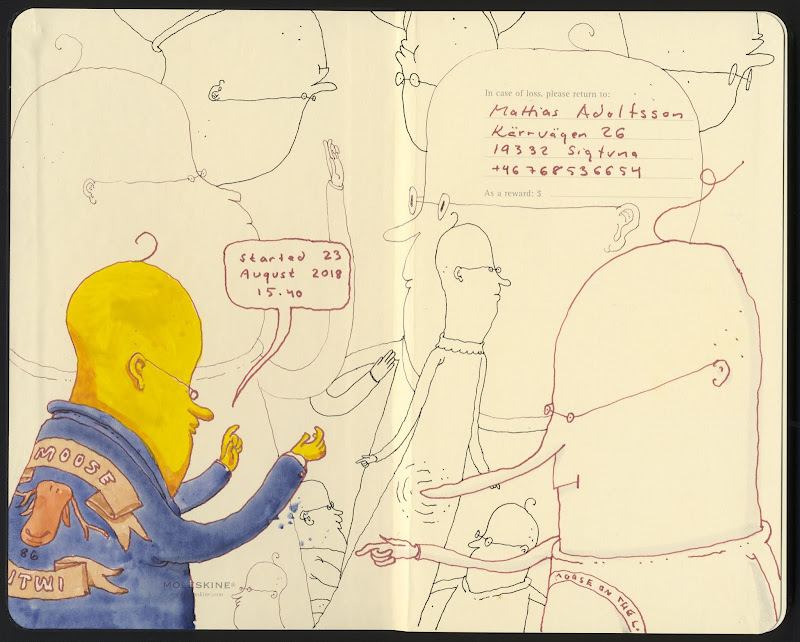 started 23
August 2018
15.40
MOOSE
86
ITWI
MOLESKINE®
In case of loss, please return to:
Mattias Adolfsson
Kärrvägen 26
19332 Sigtuna
+46 768536654
As a reward: $
MOOSE ON THE L